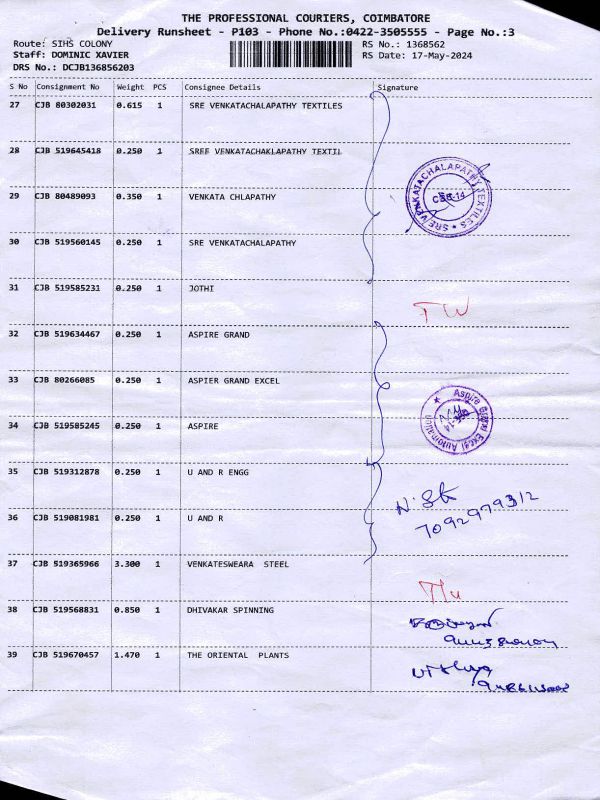 THE PROFESSIONAL COURIERS, COIMBATORE
Delivery Runsheet - P103 - Phone No.:0422-3505555 - Page No.:3
Route: SIHS COLONY
Staff: DOMINIC XAVIER
DRS No.: DCJB136856203
RS No.: 1368562
RS Date: 17-May-2024
S No Consignment No Weight PCS Consignee Details Signature
27 CJB 80302031 0.615 1 SRE VENKATACHALAPATHY TEXTILES
28 CJB 519645418 0.250 1 SREE VENKATACHAKLAPATHY TEXTIL
SRE VENKATACHALAPATHY TEXTILES
CBE-14
29 CJB 80489093 0.350 1 VENKATA CHLAPATHY
30 CJB 519560145 0.250 1 SRE VENKATACHALAPATHY
31 CJB 519585231 0.250 1 JOTHI
TW
32 CJB 519634467 0.250 1 ASPIRE GRAND
33 CJB 80266085 0.250 1 ASPIER GRAND EXCEL
Aspire Excel Automation
34 CJB 519585245 0.250 1 ASPIRE
35 CJB 519312878 0.250 1 U AND R ENGG
7092979312
36 CJB 519081981 0.250 1 U AND R
37 CJB 519365966 3.300 1 VENKATESWEARA STEEL
38 CJB 519568831 0.850 1 DHIVAKAR SPINNING
39 CJB 519670457 1.470 1 THE ORIENTAL PLANTS